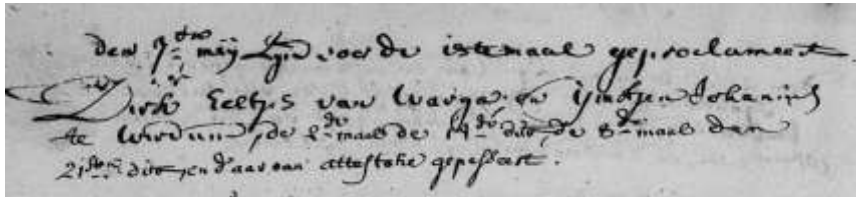 den 7den meij Zijn voor de iste maal geproclameert
Dirk Eeltjes van Warga en Ijmkjen Johannes
te Wirdum, de 2de maal de 14de dito, de 3de maal den
21ste dito, en daar van attestatie gepasseert.